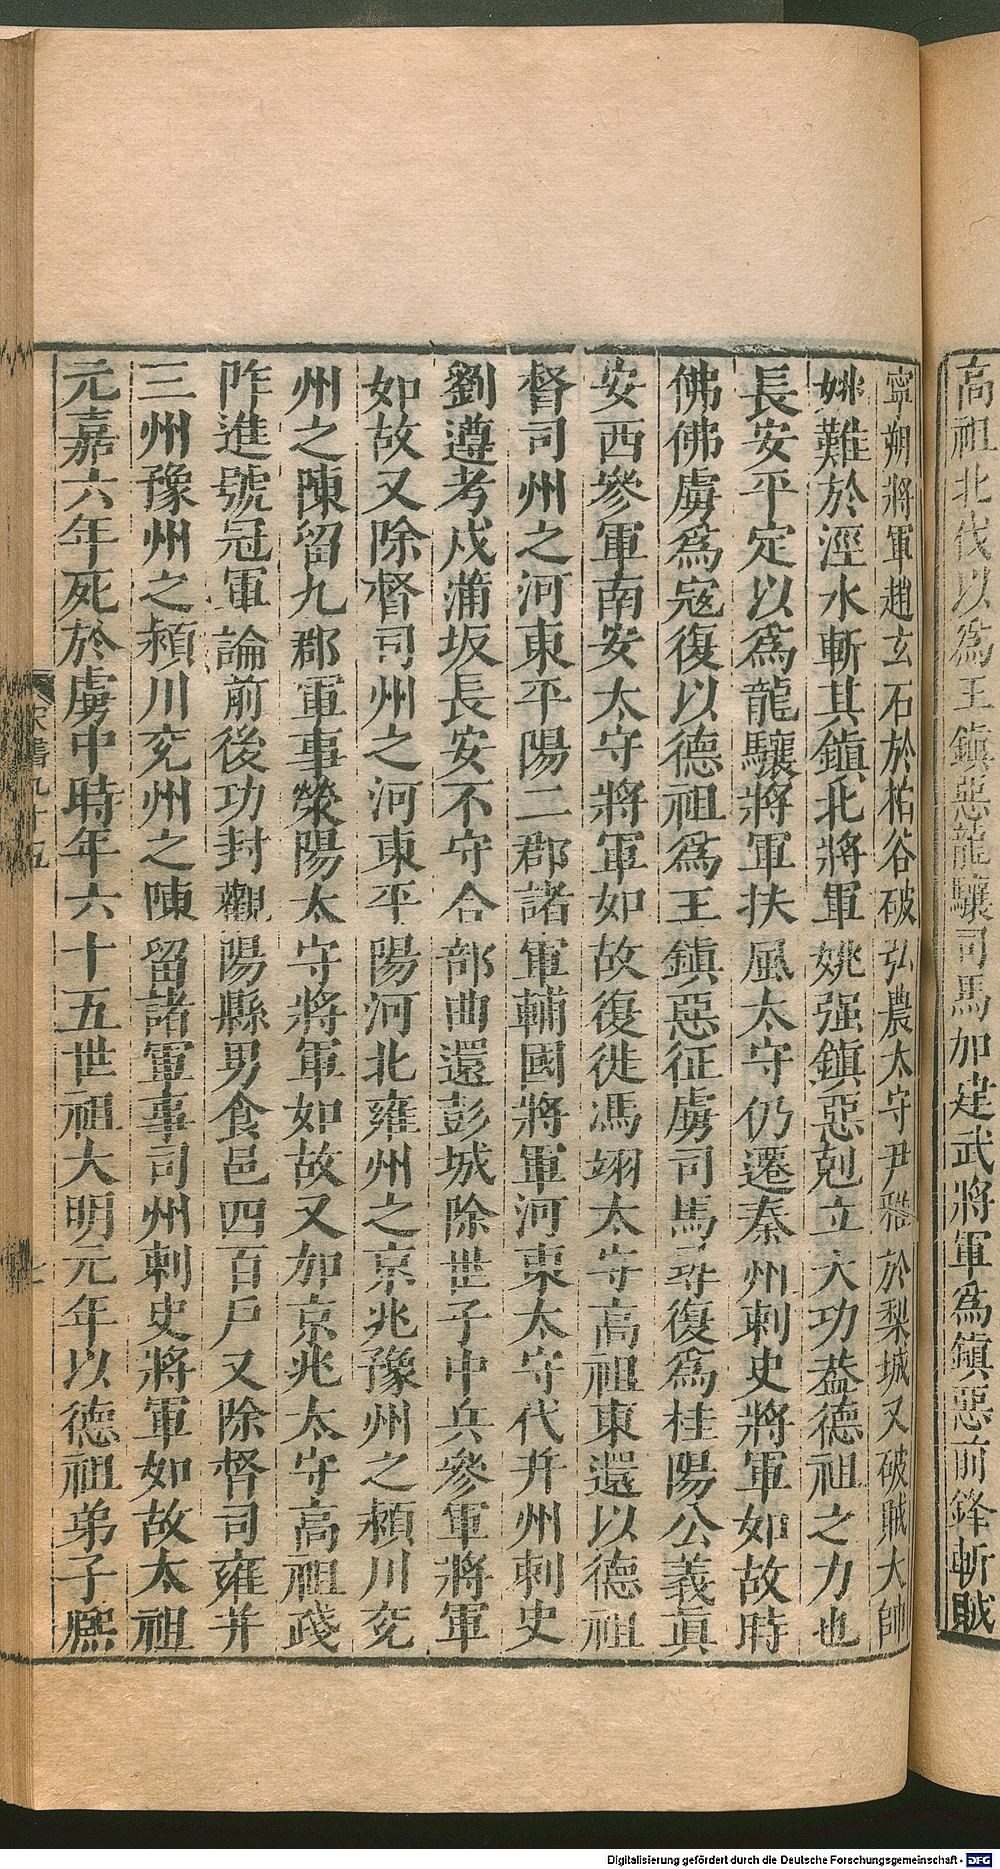 高祖北伐以為王鎮惡龍驤司馬加建武將軍為鎮惡前鋒斬賊
寧朔將軍趙玄石於栢谷破弘農太守尹雅於梨城又破賊大帥
姚難於涇水斬其鎮北將軍姚强鎮惡剋立大功葢德祖之力也
長安平定以為龍驤將軍扶風太守仍遷秦州刺史將軍如故時
佛佛虜為寇復以德祖為王鎮惡征虜司馬尋復為桂陽公義眞
安西參軍南安太守將軍如故復徙馮翊太守高祖東還以德祖
督司州之河東平陽二郡諸軍輔國將軍河東太守代并州刺史
劉遵考戍蒲坂長安不守合部曲還彭城除世子中兵參軍將軍
如故又除督司州之河東平陽河北雍州之京兆豫州之潁川兖
州之陳留九郡軍事滎陽太守將軍如故又加京兆太守高祖踐
阼進號冠軍論前後功封觀陽縣男食邑四百戶又除督司雍并
三州豫州之潁川兖州之陳留諸軍事司州刺史將軍如故太祖
元嘉六年死於虜中時年六十五世祖大明元年以德祖弟子熙
宋書九十五
七
Digitalisierung gefördert durch die Deutsche Forschungsgemeinschaft - DFG